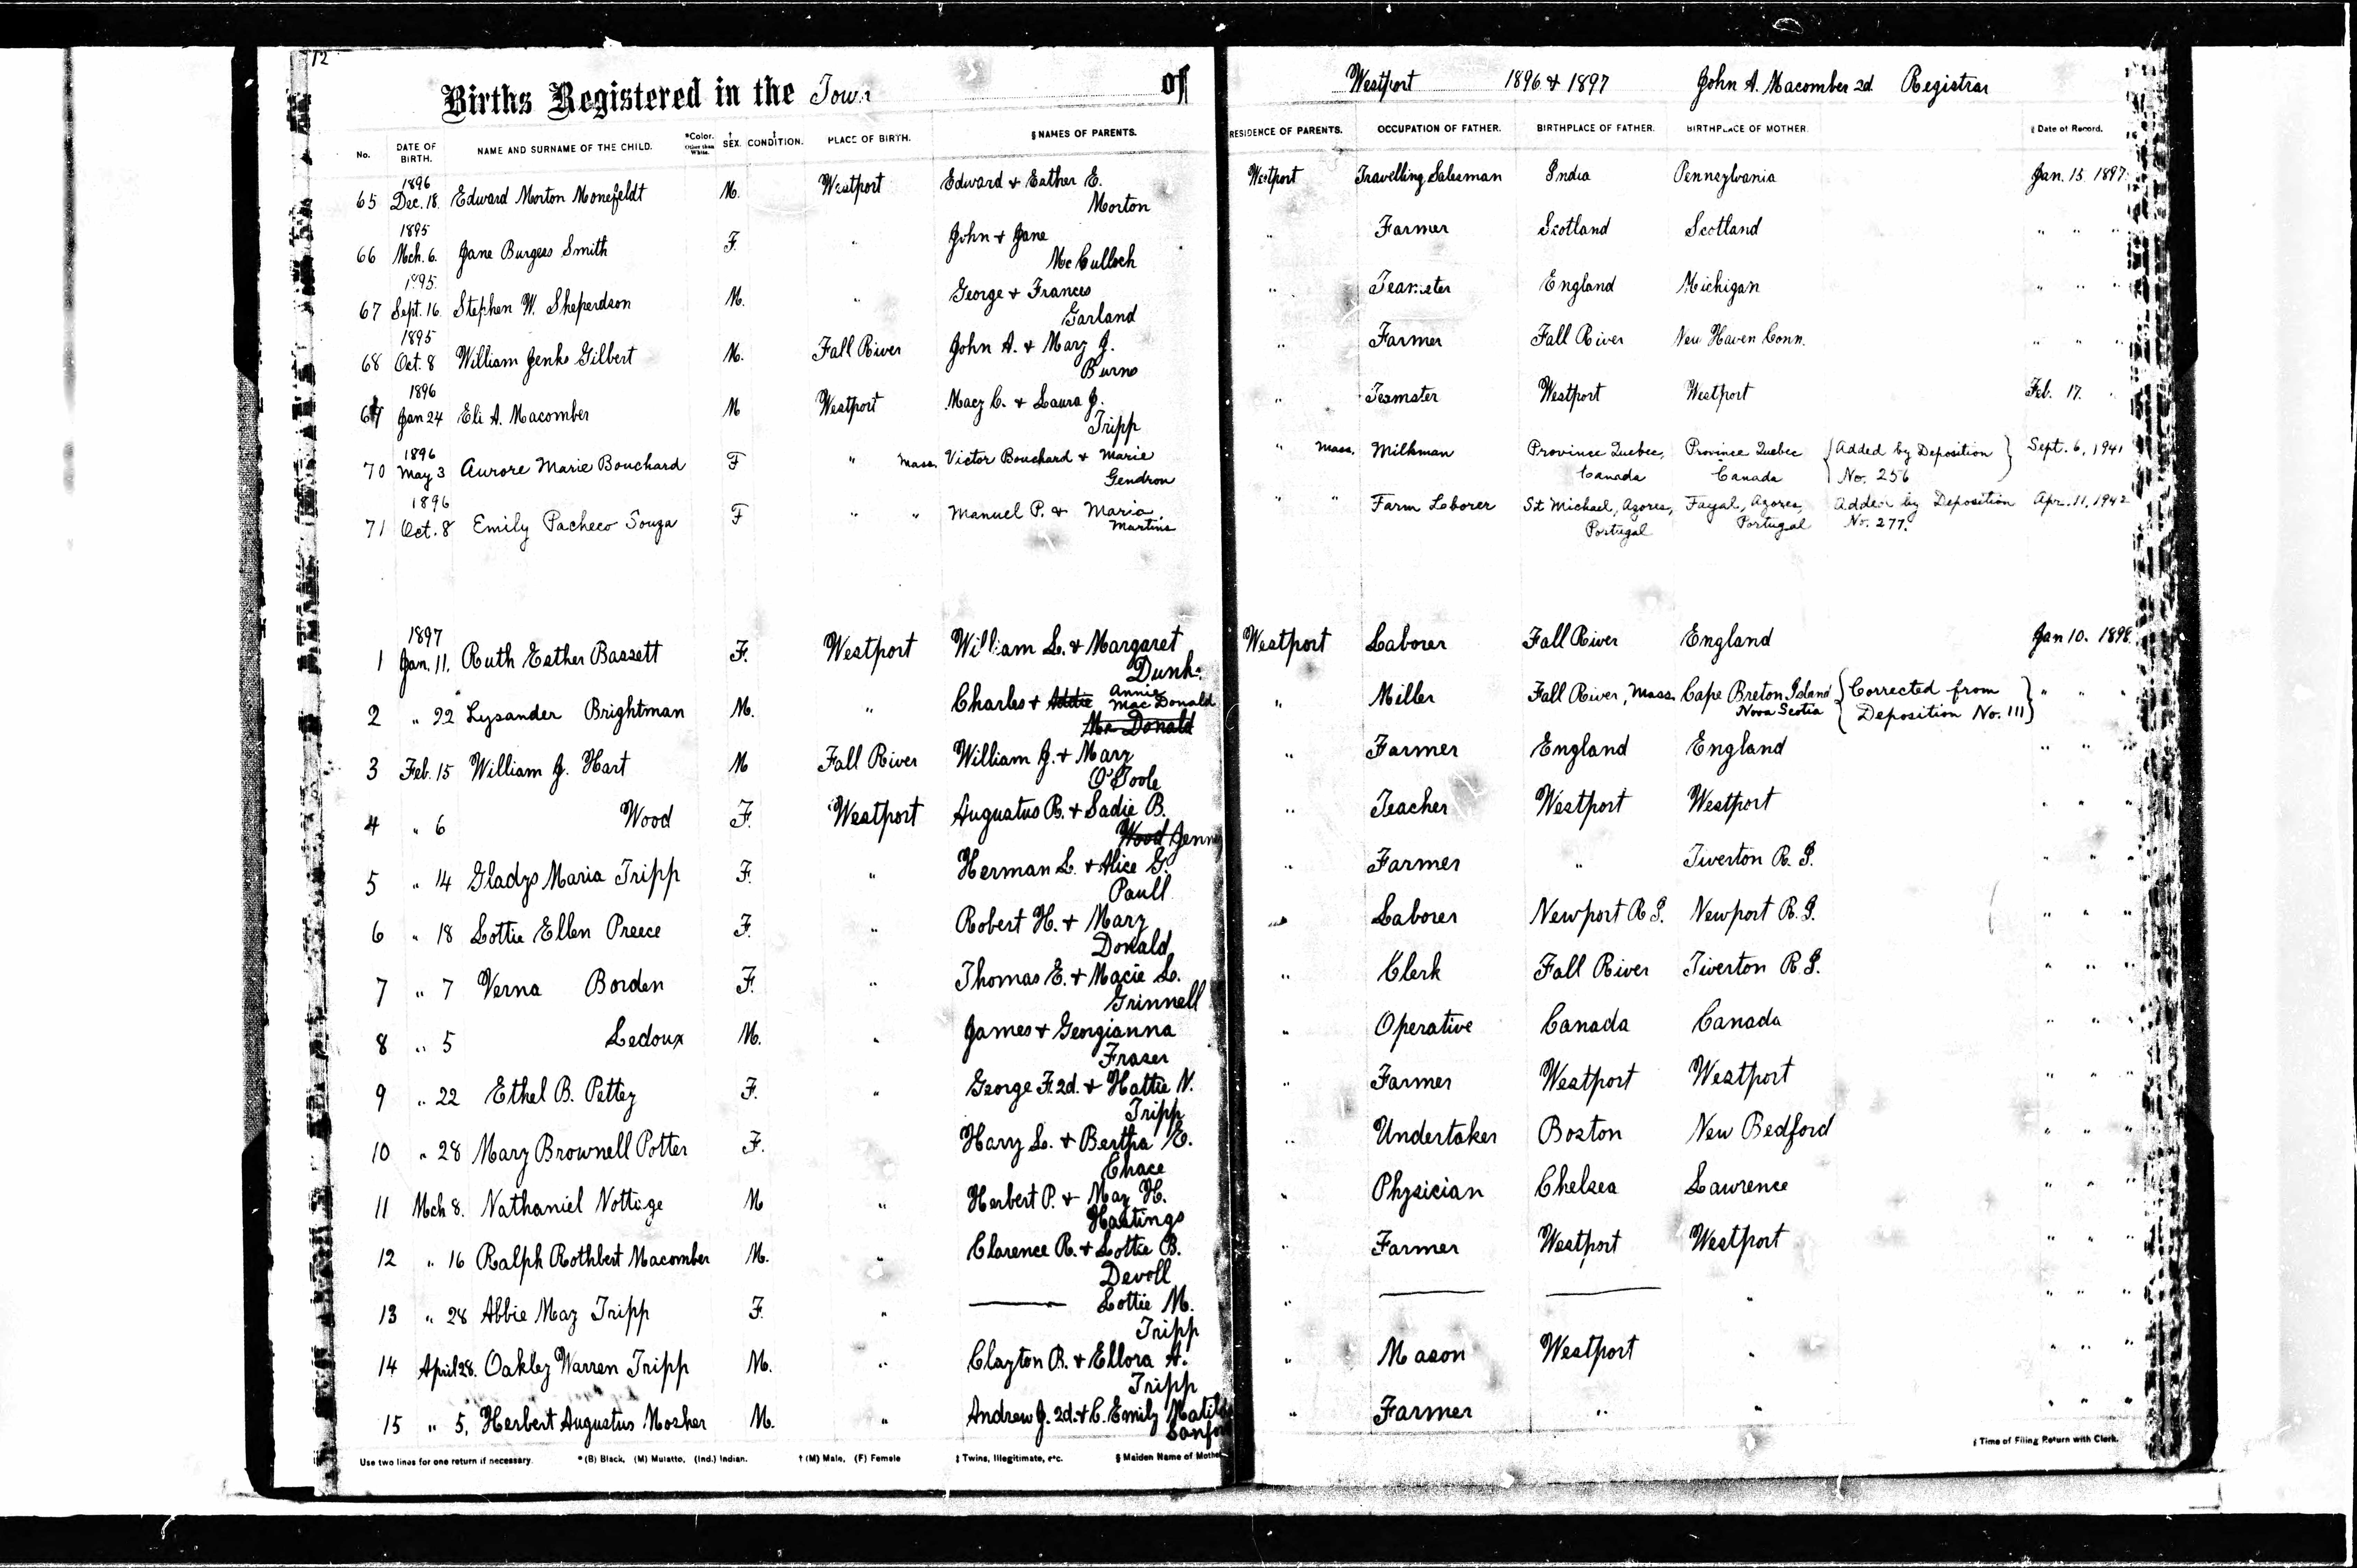 12
Births Registered in the Town of Westport 1896 & 1897 John A. Macomber 2d Registrar
No. DATE OF BIRTH. NAME AND SURNAME OF THE CHILD. *Color. Other than White. † SEX. ‡ CONDITION. PLACE OF BIRTH. § NAMES OF PARENTS. RESIDENCE OF PARENTS. OCCUPATION OF FATHER. BIRTHPLACE OF FATHER. BIRTHPLACE OF MOTHER. ‖ Date of Record.
1896
65 Dec. 18. Edward Morton Monefeldt M. Westport Edward & Esther E. Westport Travelling Salesman India Pennsylvania Jan. 15 1897
Morton
1895
66 Mch. 6. Jane Burgess Smith F. " John & Jane " Farmer Scotland Scotland " " "
McCulloch
1895
67 Sept. 16. Stephen W. Sheperdson M. " George & Frances " Teamster England Michigan " " "
Garland
1895
68 Oct. 8 William Jenks Gilbert M. Fall River John A. & Mary J. " Farmer Fall River New Haven Conn. " " "
Burns
1896
69 Jan 24 Eli A. Macomber M Westport Macy C. & Laura J. " Teamster Westport Westport Feb. 17. "
Tripp
1896
70 May 3 Aurore Marie Bouchard F " Mass. Victor Bouchard & Marie " Mass. Milkman Province Quebec, Province Quebec Added by Deposition Sept. 6, 1941
Gendron Canada Canada No. 256
1896
71 Oct. 8 Emily Pacheco Souza F " " Manuel P. & Maria " " Farm Laborer St Michael, Azores, Fayal, Azores, Added by Deposition Apr. 11, 1942
Martins Portugal Portugal No. 277.
1897
1 Jan. 11. Ruth Esther Bassett F. Westport William L. & Margaret Westport Laborer Fall River England Jan 10. 1898.
2 " 22 Lysander Brightman M. " Charles & Addie Annie MacDonald " Miller Fall River, Mass. Cape Breton Island Corrected from " " "
McDonald Nova Scotia Deposition No. 111
3 Feb. 15 William J. Hart M Fall River William J. & Mary " Farmer England England " " "
O'Toole
4 " 6 Wood F. Westport Augustus R. & Sadie B. " Teacher Westport Westport " " "
Wood Jenny
5 " 14 Gladys Maria Tripp F. " Herman L. & Alice G. " Farmer " Tiverton R.I. " " "
Paull
6 " 18 Lottie Ellen Preece F. " Robert H. & Mary " Laborer Newport R.I. Newport R.I. " " "
Donald
7 " 7 Verna Borden F. " Thomas E. & Macie L. " Clerk Fall River Tiverton R.I. " " "
Grinnell
8 " 5 Ledoux M. " James & Georgianna " Operative Canada Canada " " "
Fraser
9 " 22 Ethel B. Pettey F. " George F. 2d. & Hattie N. " Farmer Westport Westport " " "
Tripp
10 " 28 Mary Brownell Potter F. " Harry L. & Bertha E. " Undertaker Boston New Bedford " " "
Chace
11 Mch 8. Nathaniel Nottage M " Herbert P. & May H. " Physician Chelsea Lawrence " " "
Hastings
12 " 16 Ralph Rothbert Macomber M. " Clarence R. & Lottie B. " Farmer Westport Westport " " "
Devoll
13 " 28 Abbie May Tripp F. " — Lottie M. " — — " " " "
Tripp
14 April 28. Oakley Warren Tripp M. " Clayton R. & Ellora A. " Mason Westport " " " "
Tripp
15 " 5, Herbert Augustus Mosher M. " Andrew J. 2d. & C. Emily Matilda " Farmer " " " " "
Use two lines for one return if necessary. *(B) Black, (M) Mulatto, (Ind.) Indian. † (M) Male, (F) Female ‡ Twins, Illegitimate, etc. § Maiden Name of Mother ‖ Time of Filing Return with Clerk.